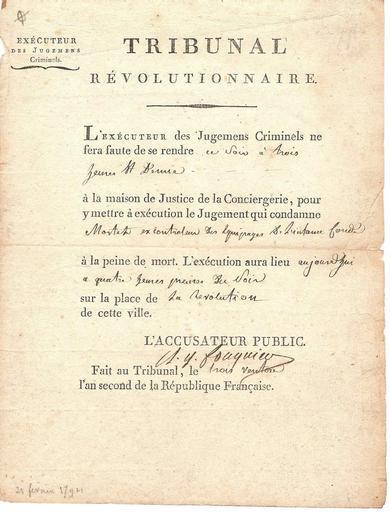 EXÉCUTEUR
DES JUGEMENS
Criminels.
TRIBUNAL
RÉVOLUTIONNAIRE.
L'EXÉCUTEUR des Jugemens Criminels ne
fera faute de se rendre ce Soir à trois
heures
à la maison de Justice de la Conciergerie, pour
y mettre à exécution le Jugement qui condamne
ex controleur des Equipages de
à la peine de mort. L'exécution aura lieu aujourd'hui
a quatre heures du Soir
sur la place de La revolution
de cette ville.
L'ACCUSATEUR PUBLIC.
Fouquier
Fait au Tribunal, le trois ventose
l'an second de la République Française.
21 fevrier 1794